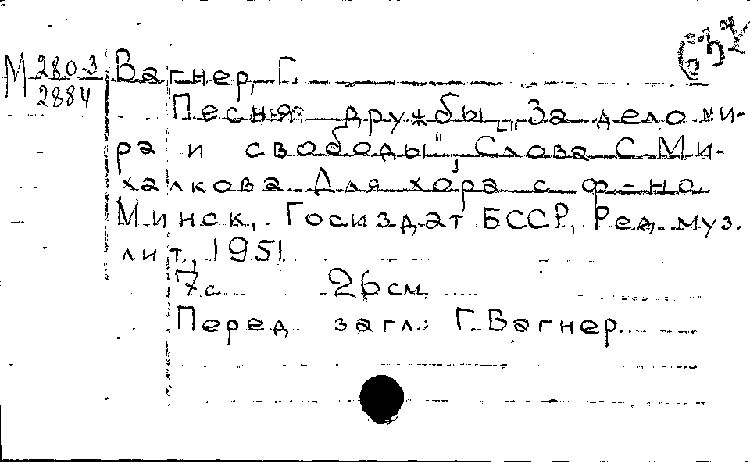 М 280-3
2884
Вагнер, Г.
Песня дружбы „За дело ми-
ра и свободы". Слова С. Ми-
халкова. Для хора с ф-но.
Минск, Госиздат БССР, Ред. муз.
лит., 1951
7 с. 26 см
Перед загл.: Г. Вагнер.